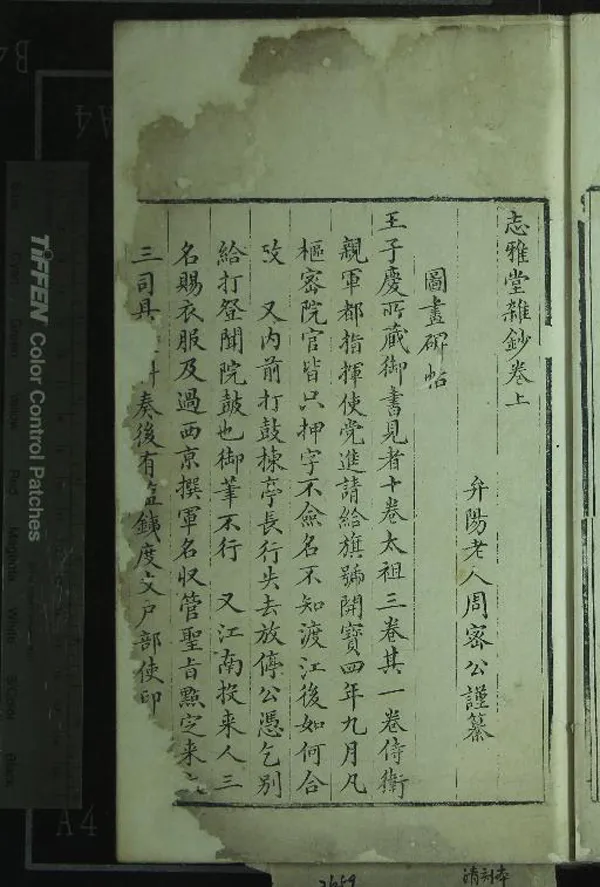 志雅堂雜鈔卷上
弁陽老人周密公謹纂
圖畫碑帖
王子慶所藏御書見者十卷太祖三卷其一卷侍衛
親軍都指揮使党進請給旗號開寶四年九月凡
樞密院官皆只押字不僉名不知渡江後如何合
攷 又内前打鼓揀亭長行失去放停公憑乞别
給打登聞院鼓也御筆不行 又江南投来人三
名賜衣服及過西京撰軍名収管聖旨㸃定来
三司具 奏後有 銕度文戸部使印
TIFFEN Color Control Patches
A4
清刻本